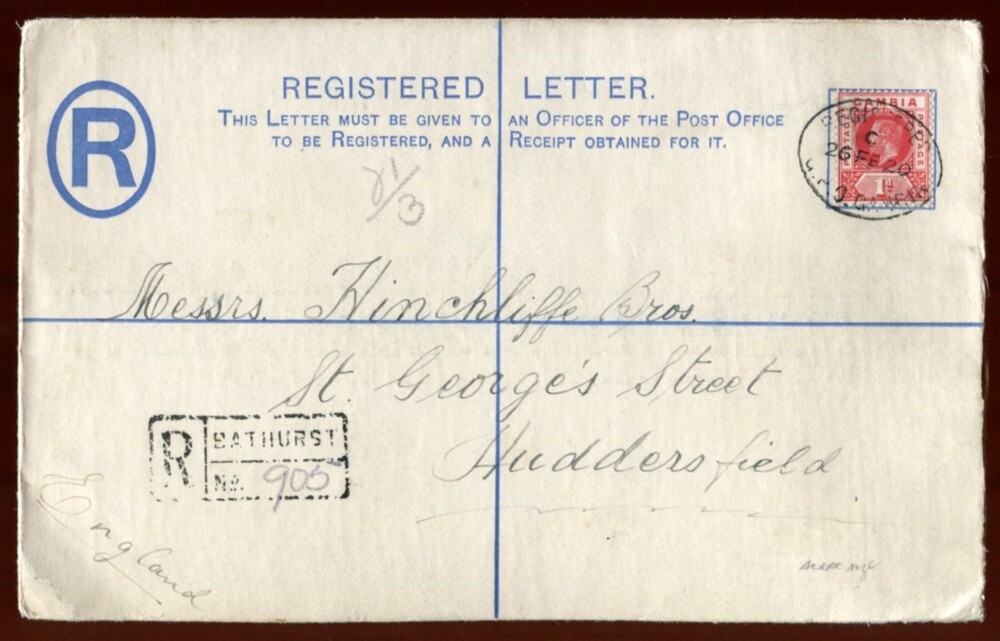 R
REGISTERED LETTER.
THIS LETTER MUST BE GIVEN TO AN OFFICER OF THE POST OFFICE
TO BE REGISTERED, AND A RECEIPT OBTAINED FOR IT.
GAMBIA
POSTAGE
1d
REGISTERED
C
26 FE 20
G.P.O. GAMBIA
Messrs. Hinchliffe Bros.
St. George's Street
Huddersfield
R BATHURST
No. 905
England